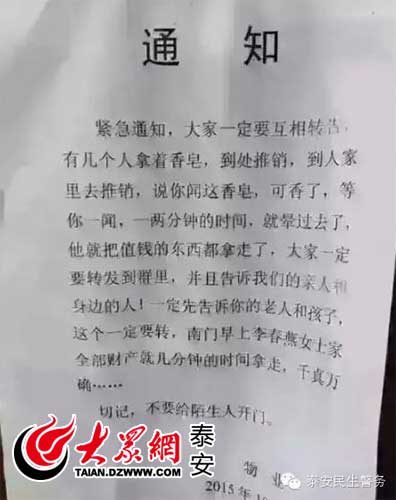 通 知
紧急通知，大家一定要互相转告，
有几个人拿着香皂，到处推销，到人家
里去推销，说你闻这香皂，可香了，等
你一闻，一两分钟的时间，就晕过去了，
他就把值钱的东西都拿走了，大家一定
要转发到群里，并且告诉我们的亲人和
身边的人！一定先告诉你的老人和孩子，
这个一定要转，南门早上李春燕女士家
全部财产就几分钟的时间拿走，千真万
确……
切记，不要给陌生人开门。
物业
2015年
大众網 泰安
TAIAN.DZWWW.COM
泰安民生警务